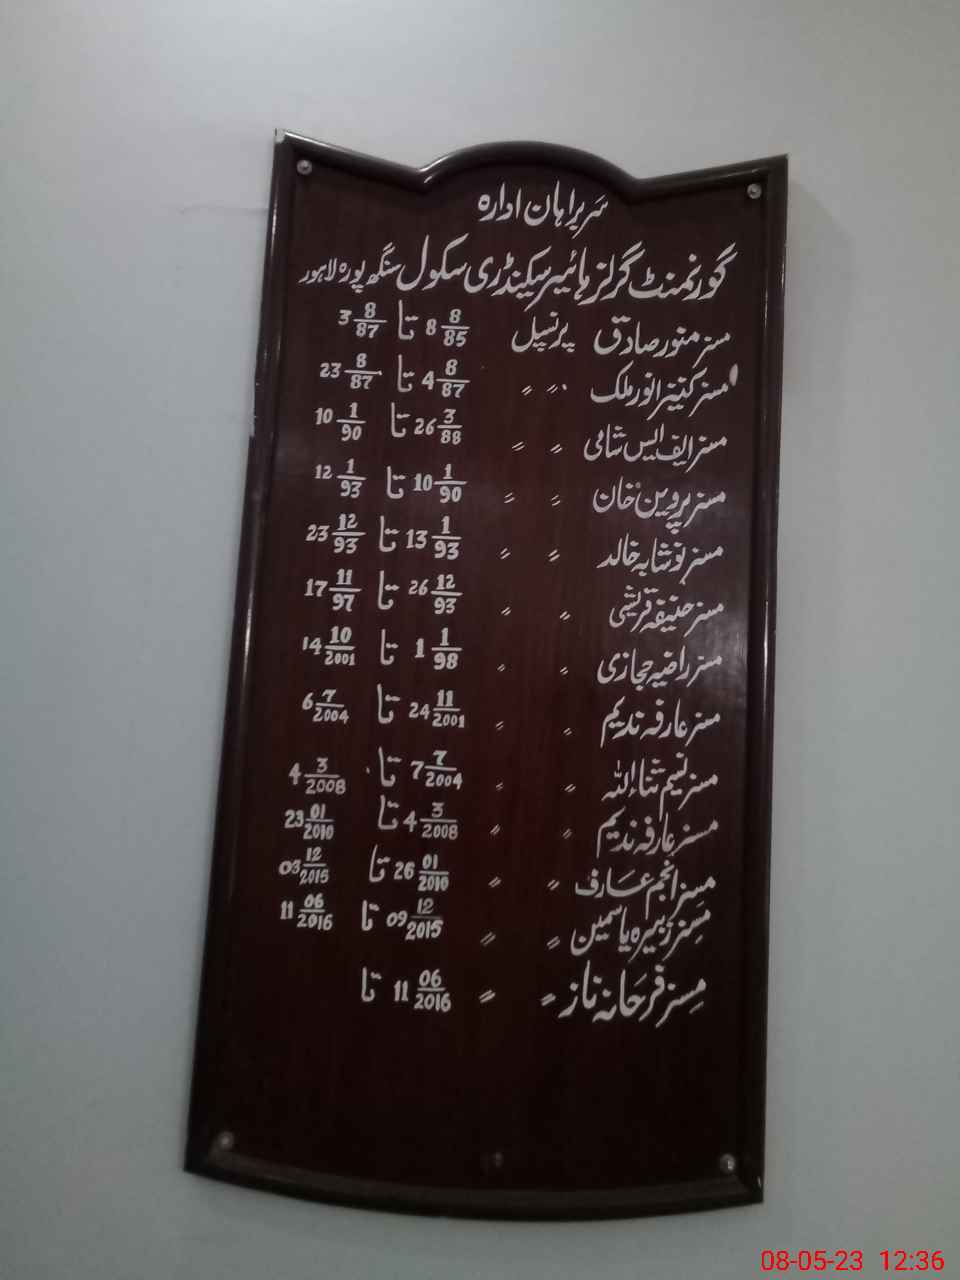 سربراہان ادارہ
گورنمنٹ گرلز ہائیر سیکینڈری سکول سنگھ پورہ لاہور
مسز منور صادق پرنسپل 8 8/85 تا 3 8/87
مسز کنیز انور ملک 〃 〃 4 8/87 تا 23 8/87
مسز ایف ایس شامی 〃 〃 26 3/88 تا 10 1/90
مسز پروین خان 〃 〃 10 1/90 تا 12 1/93
مسز نوشابہ خالد 〃 〃 13 1/93 تا 23 12/93
مسز حنیفہ قریشی 〃 〃 26 12/93 تا 17 11/97
مسز راضیہ حجازی 〃 〃 1 1/98 تا 14 10/2001
مسز عارفہ ندیم 〃 〃 24 11/2001 تا 6 7/2004
مسز نسیم ثناء اللہ 〃 〃 7 7/2004 تا 4 3/2008
مسز عارفہ ندیم 〃 〃 4 3/2008 تا 23 01/2010
مسز انجم عارف 〃 〃 26 01/2010 تا 03 12/2015
مسز زبیرہ یاسمین 〃 〃 09 12/2015 تا 11 06/2016
مسز فرحانہ ناز 〃 〃 11 06/2016 تا
08-05-23 12:36